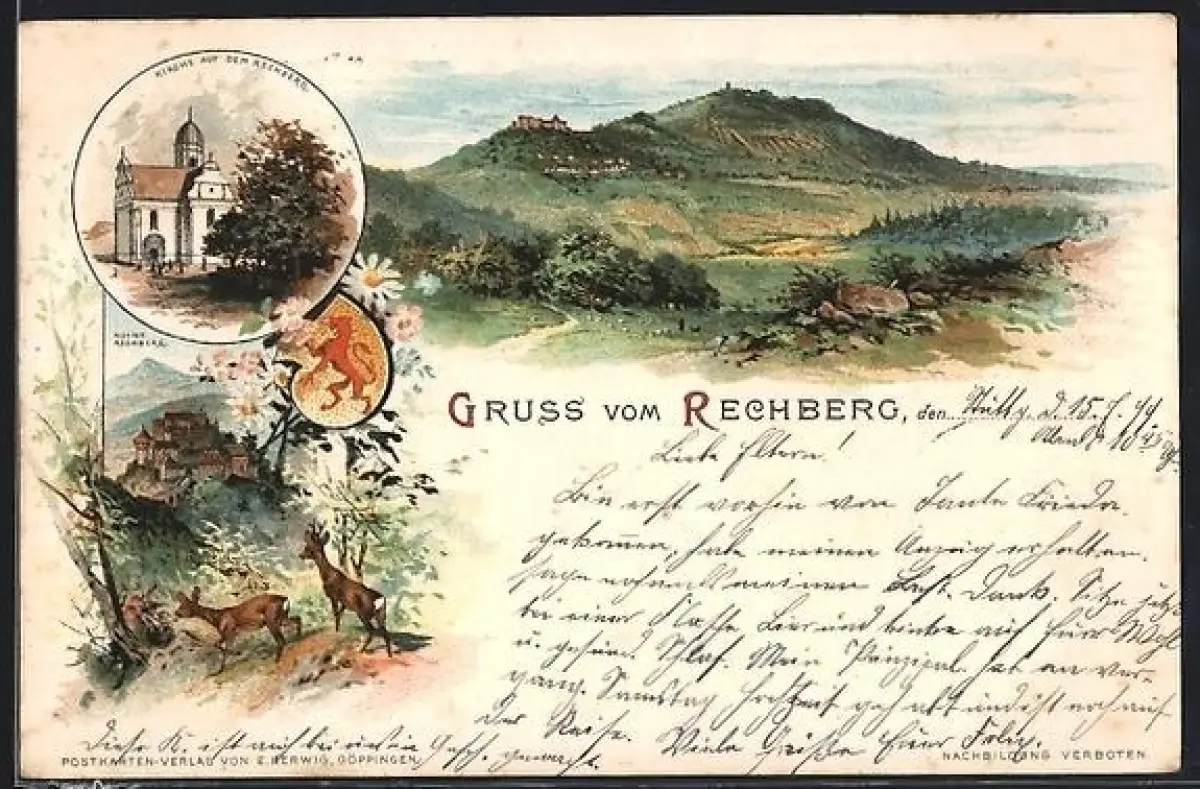 KIRCHE AUF DEM RECHBERG.
RUINE
RECHBERG.
GRUSS VOM RECHBERG, den Stuttg. d. 15. 7. 99
Abend 10
Liebe Eltern!
Bin erst vorhin von Tante Frieda
gekommen, habe meinen Anzug erhalten,
sage nochmals meinen Best. Dank. Sitze jetzt
bei einer Flasche Bier und trinke auf Euer Wohl
u. gesund. Schlaf. Mein Prinzipal hat an ver-
gang. Samstag Hochzeit gehabt und ist noch auf
der Reise. Viele Grüße Euer
Diese K. ist auch bei uns im Gesch. gemacht.
POSTKARTEN-VERLAG VON E. BERWIG, GÖPPINGEN.
NACHBILDUNG VERBOTEN.